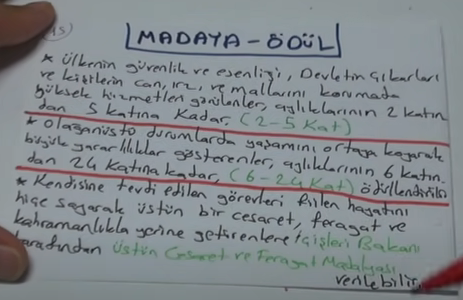 15)
MADAYA-ÖDÜL
* Ülkenin güvenlik ve esenliği, Devletin Çıkarları
ve kişilerin can, ırz, ve mallarını korumada
yüksek hizmetleri görülenler, aylıklarının 2 katın
dan 5 katına kadar, (2-5 Kat)
* Olağanüstü durumlarda yaşamını ortaya koyarak
büyük yararlılıklar gösterenler, aylıklarının 6 katın-
dan 24 Katına kadar, (6-24 Kat) ödüllendirilir
* Kendisine tevdi edilen görevleri fiilen hayatını
hiçe sayarak üstün bir cesaret, feragat ve
kahramanlıkla yerine getirenlere İçişleri Bakanı
tarafından Üstün Cesaret ve Feragat Madalyası
verilebilir.